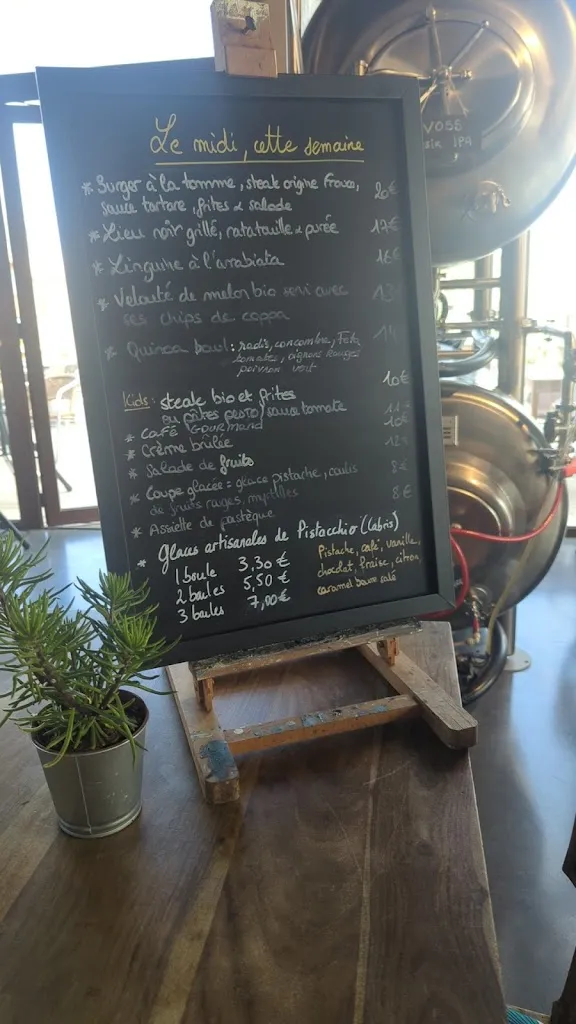 Le midi, cette semaine
* Burger à la tomme, steak origine France, 20€
sauce tartare, frites & salade
* Lieu noir grillé, ratatouille & purée 17€
* Linguine à l'arabiata 16€
* Velouté de melon bio servi avec
ses chips de coppa
* Quinoa bowl : radis, concombre, Feta
tomates, oignons rouges
poivron vert
Kids : steak bio et frites 10€
ou pâtes pesto / sauce tomate
* Café Gourmand
* Crème brûlée
* Salade de fruits
* Coupe glacée : glace pistache, coulis 8€
de fruits rouges, myrtilles
* Assiette de pastèque 8€
* Glaces artisanales de Pistacchio (Cabris)
1 boule 3,30€
2 boules 5,50€
3 boules 7,00€
Pistache, café, vanille,
chocolat, fraise, citron,
caramel beurre salé
VOSS
IPA